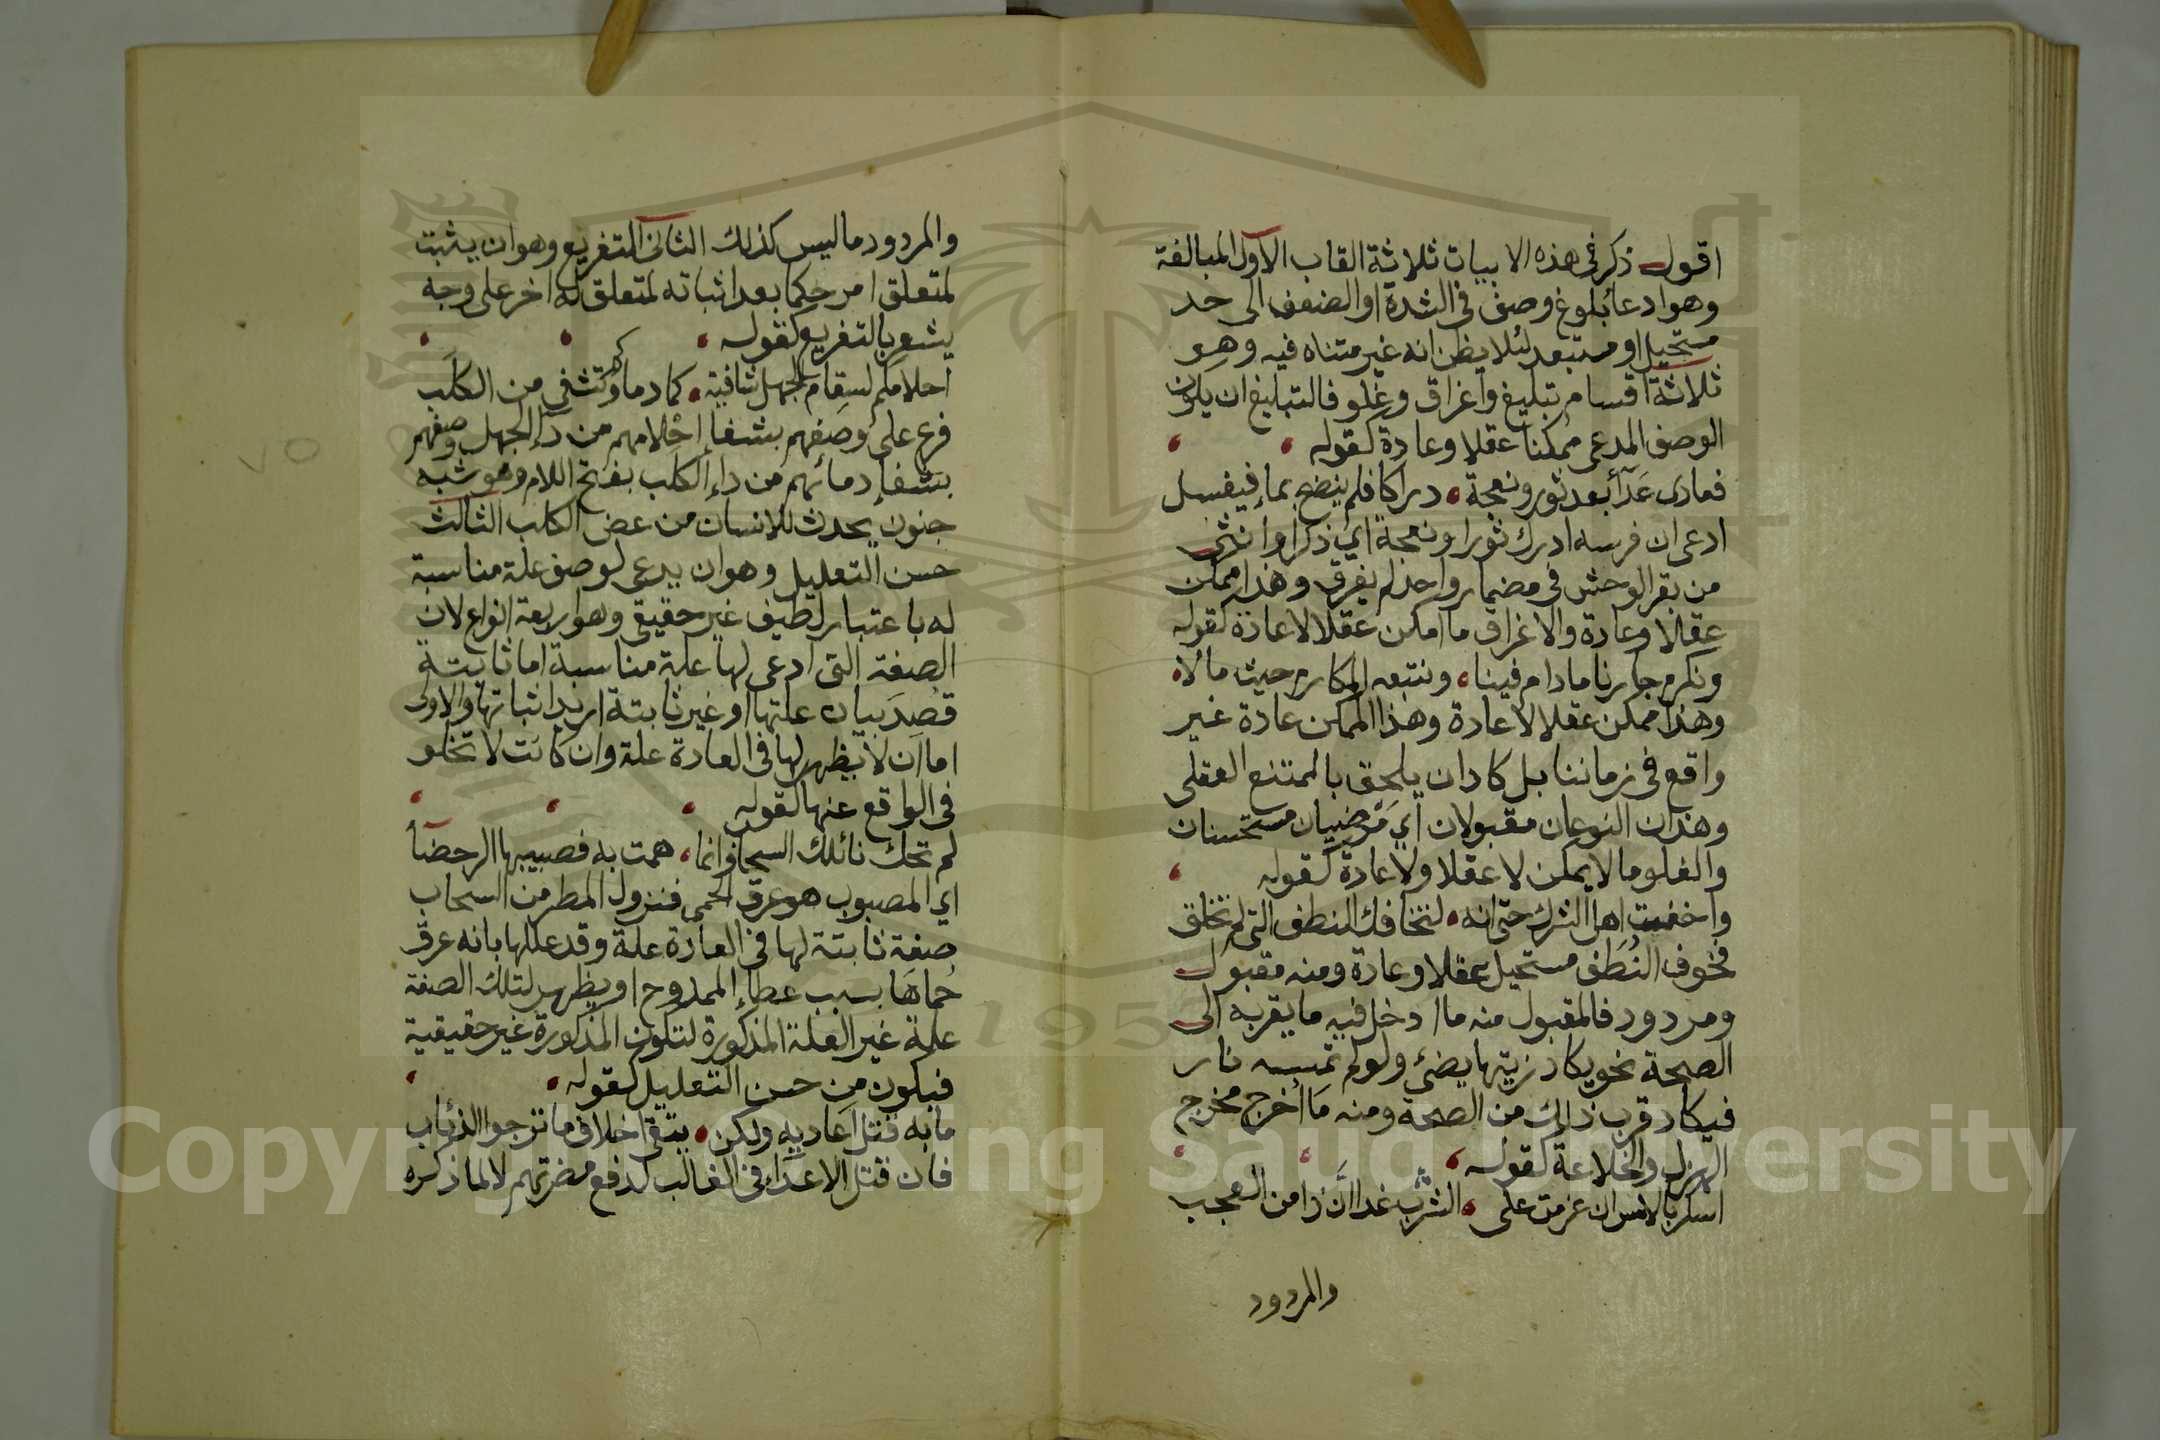 اقول ذكر في هذه الابيات ثلاثة القاب الاول المبالغة
وهو ادعا بلوغ وصف في الشدة او الضعف الى حد
مستحيل او مستبعد لئلا يظن انه غير متناه فيه وهو
ثلاثة اقسام تبليغ واغراق وغلو فالتبليغ ان يكون
الوصف المدعى ممكنا عقلا وعادة كقوله
فعادى عدآ بعد ثور ونعجة دراكا فلم ينضح بماء فيغسل
ادعى ان فرسه ادرك ثورا ونعجة اي ذكرا وانثى
من بقر الوحش في مضمار واحد لم يغرق وهذا ممكن
عقلا وعادة والاغراق ما امكن عقلا لا عادة كقوله
ونكرم جارنا ما دام فينا ونتبعه المكارم حيث مالا
وهذا ممكن عقلا لا عادة وهذا الممكن عادة غير
واقع في زماننا بل كاد ان يلحق بالممتنع العقلى
وهذان النوعان مقبولان اي مرضيان مستحسنان
والغلو ما لا يمكن لا عقلا ولا عادة كقوله
واخفت اهل الشرك حتى انه لتخافك النطف التي لم تخلق
فخوف النطف مستحيل عقلا وعادة ومنه مقبول
ومردود فالمقبول منه ما ادخل فيه ما يقربه الى
الصحة نحو يكاد زيتها يضئ ولو لم تمسسه نار
فيكاد قرب ذلك من الصحة ومنه ما اخرج مخرج
الهزل والخلاعة كقوله
اسكر بالامس ان عزمت على الشرب غدا ان ذا من العجب
والمردود
والمردود ما ليس كذلك الثاني التفريع وهو ان يثبت
لمتعلق امر حكما بعد اثباته لمتعلق له اخر على وجه
يشعر بالتفريع كقوله
احلامكم لسقام الجهل شافية كما دماؤكم تشفى من الكلب
فرع على وصفهم بشفاء احلامهم من داء الجهل وصفهم
بشفاء دمائهم من داء الكلب بفتح اللام وهو شبه
جنون يحدث للانسان من عض الكلب الثالث
حسن التعليل وهو ان يدعى لوصف علة مناسبة
له باعتبار لطيف غير حقيقي وهو اربعة انواع لان
الصفة التي ادعى لها علة مناسبة اما ثابتة
قصد بيان علتها او غير ثابتة اريد اثباتها والاولى
اما ان لا يظهر لها في العادة علة وان كانت لا تخلو
في الواقع عنها كقوله
لم تحك نائلك السحاب وانما حمت به فصبيبها الرحضآ
اي المصبوب هو عرق الحمى فنزول المطر من السحاب
صفة ثابتة لها في العادة علة وقد عللها بانه عرق
حماها بسبب عطاء الممدوح او يظهر لتلك الصفة
علة غير العلة المذكورة لتكون المذكورة غير حقيقية
فيكون من حسن التعليل كقوله
ما به قتل اعاديه ولكن يتقى اخلاف ما ترجوا الذئاب
فان قتل الاعداء في الغالب لدفع مضرتهم لا لما ذكره
٧٥
Copyright © King Saud University
1957